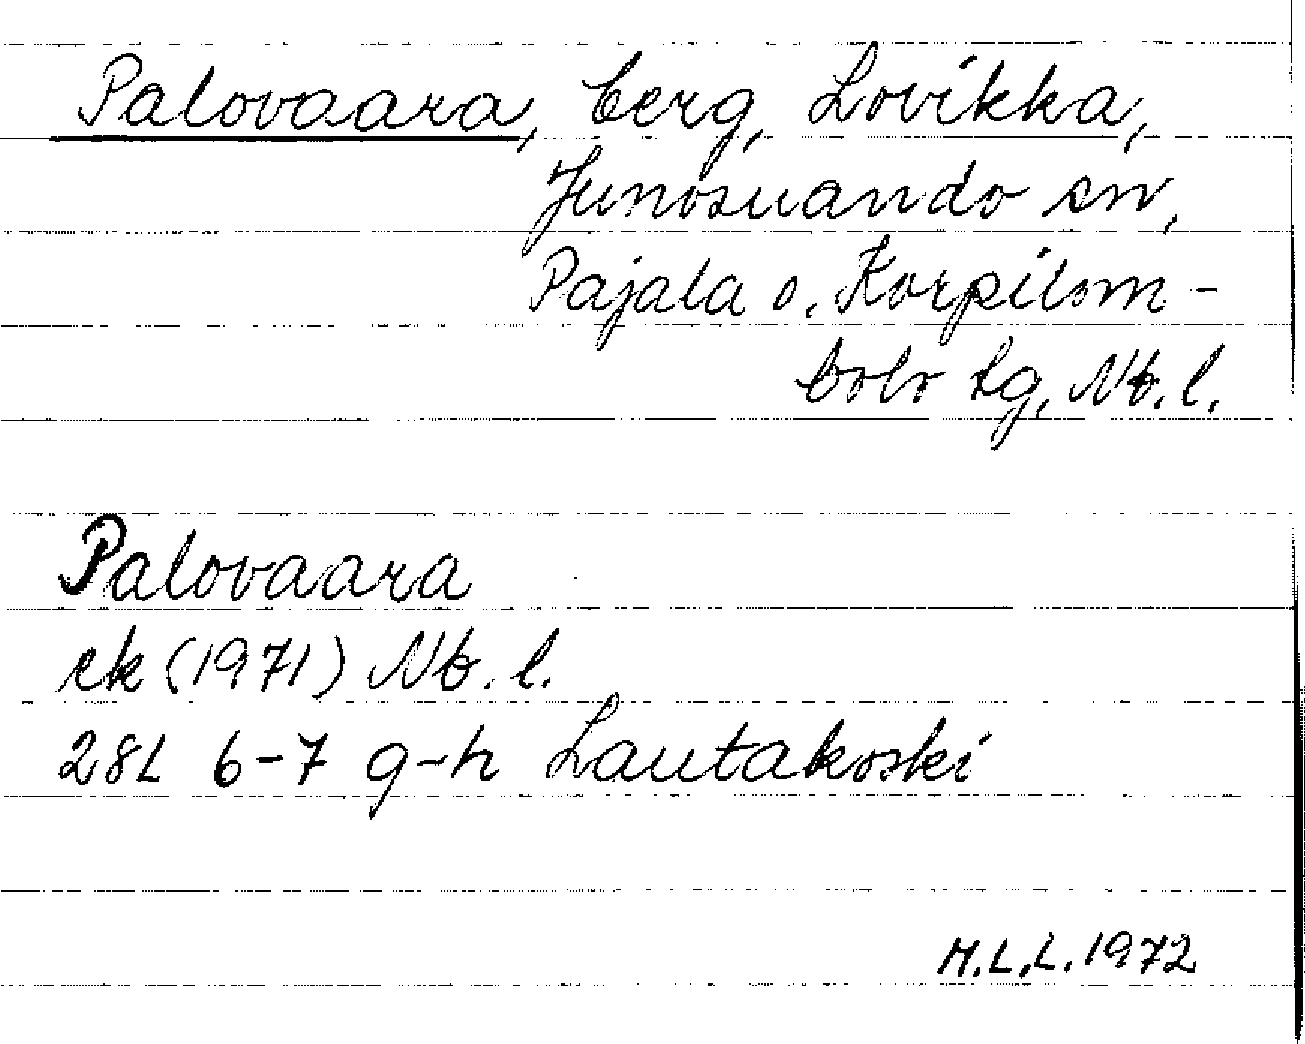 Palovaara, berg, Lovikka,
Junosuando sn,
Pajala o. Korpilom-
bolo tg, Nb. l.
Palovaara
ek (1971) Nb. l.
28L 6-7 g-h Lautakoski
M.L.L. 1972